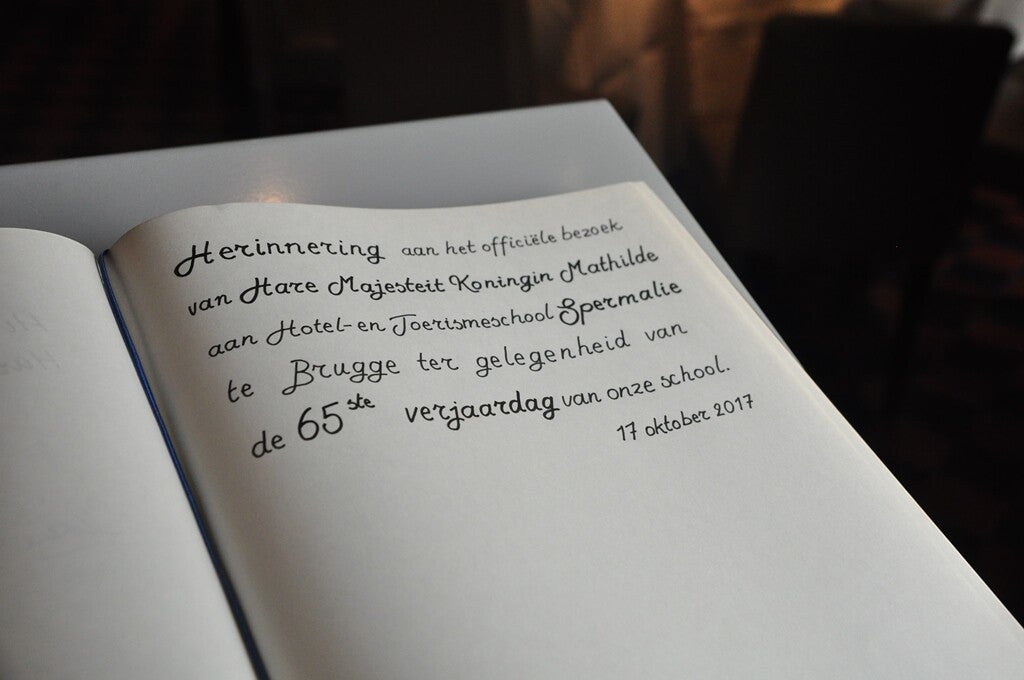 Herinnering aan het officiële bezoek
van Hare Majesteit Koningin Mathilde
aan Hotel- en Toerismeschool Spermalie
te Brugge ter gelegenheid van
de 65ste verjaardag van onze school.
17 oktober 2017